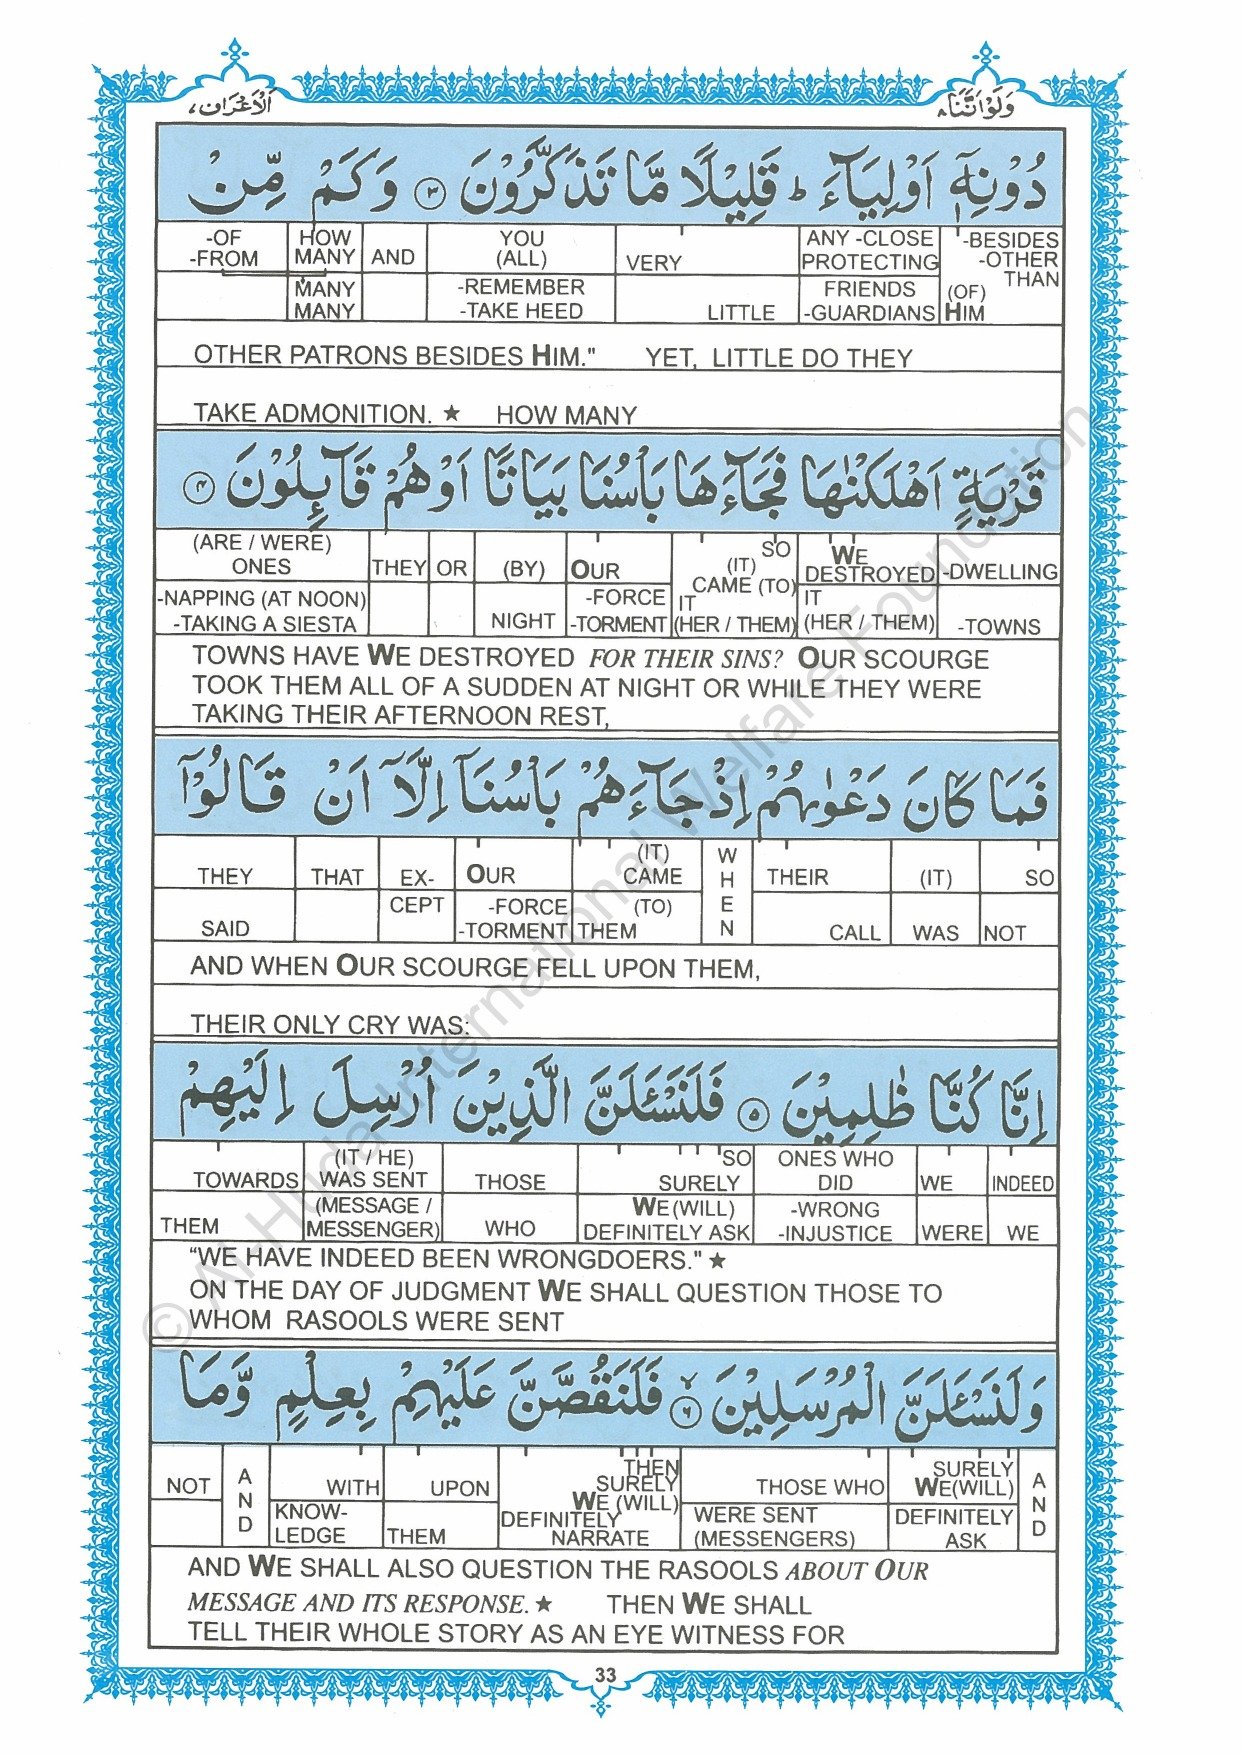 اَلْاَعْرَاف٧
وَلَوْاَنَّنَا٨
دُوْنِهٖٓ اَوْلِيَآءَ ؕ قَلِيْلًا مَّا تَذَكَّرُوْنَ ٣ وَكَمْ مِّنْ
-OF HOW YOU ANY -CLOSE -BESIDES
-FROM MANY AND (ALL) VERY PROTECTING -OTHER THAN
MANY -REMEMBER FRIENDS (OF)
MANY -TAKE HEED LITTLE -GUARDIANS HIM
OTHER PATRONS BESIDES HIM." YET, LITTLE DO THEY
TAKE ADMONITION. ★ HOW MANY
قَرْيَةٍ اَهْلَكْنٰهَا فَجَآءَهَا بَاْسُنَا بَيَاتًا اَوْ هُمْ قَآىِٕلُوْنَ ٤
(ARE / WERE) SO WE
ONES THEY OR (BY) OUR (IT) CAME (TO) DESTROYED -DWELLING
-NAPPING (AT NOON) -FORCE IT IT
-TAKING A SIESTA NIGHT -TORMENT (HER / THEM) (HER / THEM) -TOWNS
TOWNS HAVE WE DESTROYED FOR THEIR SINS? OUR SCOURGE
TOOK THEM ALL OF A SUDDEN AT NIGHT OR WHILE THEY WERE
TAKING THEIR AFTERNOON REST,
فَمَا كَانَ دَعْوٰىهُمْ اِذْ جَآءَهُمْ بَاْسُنَآ اِلَّآ اَنْ قَالُوْٓا
(IT)
THEY THAT EX- OUR CAME WHEN THEIR (IT) SO
CEPT -FORCE (TO)
SAID -TORMENT THEM CALL WAS NOT
AND WHEN OUR SCOURGE FELL UPON THEM,
THEIR ONLY CRY WAS:
اِنَّا كُنَّا ظٰلِمِيْنَ ٥ فَلَنَسْـَٔلَنَّ الَّذِيْنَ اُرْسِلَ اِلَيْهِمْ
(IT / HE) SO ONES WHO
TOWARDS WAS SENT THOSE SURELY DID WE INDEED
(MESSAGE / WE (WILL) -WRONG
THEM MESSENGER) WHO DEFINITELY ASK -INJUSTICE WERE WE
“WE HAVE INDEED BEEN WRONGDOERS." ★
ON THE DAY OF JUDGMENT WE SHALL QUESTION THOSE TO
WHOM RASOOLS WERE SENT
وَلَنَسْـَٔلَنَّ الْمُرْسَلِيْنَ ٦ فَلَنَقُصَّنَّ عَلَيْهِمْ بِعِلْمٍ وَّمَا
THEN SURELY
NOT AND WITH UPON SURELY WE (WILL) THOSE WHO WE(WILL) AND
KNOW- DEFINITELY WERE SENT DEFINITELY
LEDGE THEM NARRATE (MESSENGERS) ASK
AND WE SHALL ALSO QUESTION THE RASOOLS ABOUT OUR
MESSAGE AND ITS RESPONSE. ★ THEN WE SHALL
TELL THEIR WHOLE STORY AS AN EYE WITNESS FOR
33
© Al-Huda International Welfare Foundation